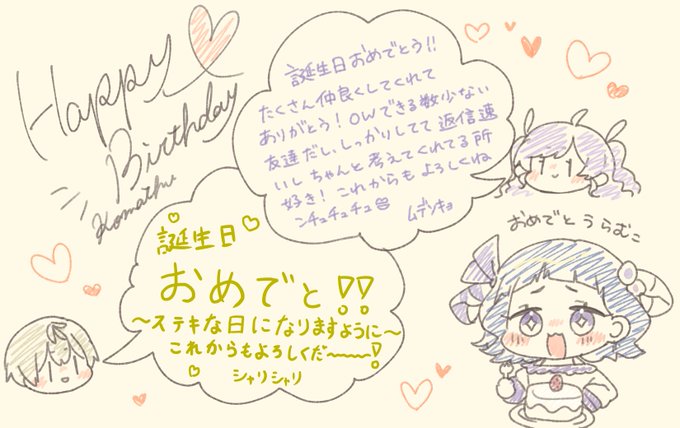 Happy
Birthday
Komathu
誕生日おめでとう!!
たくさん仲良くしてくれて
ありがとう!OWできる数少ない
友達だし、しっかりしてて返信速
いし ちゃんと考えてくれてる所
好き! これからもよろしくね
ンチュチュチュ
ムデンキョ
おめでとうらむこ
誕生日
おめでと!!
〜ステキな日になりますように〜
これからもよろしくだ〜〜〜!
シャリシャリ